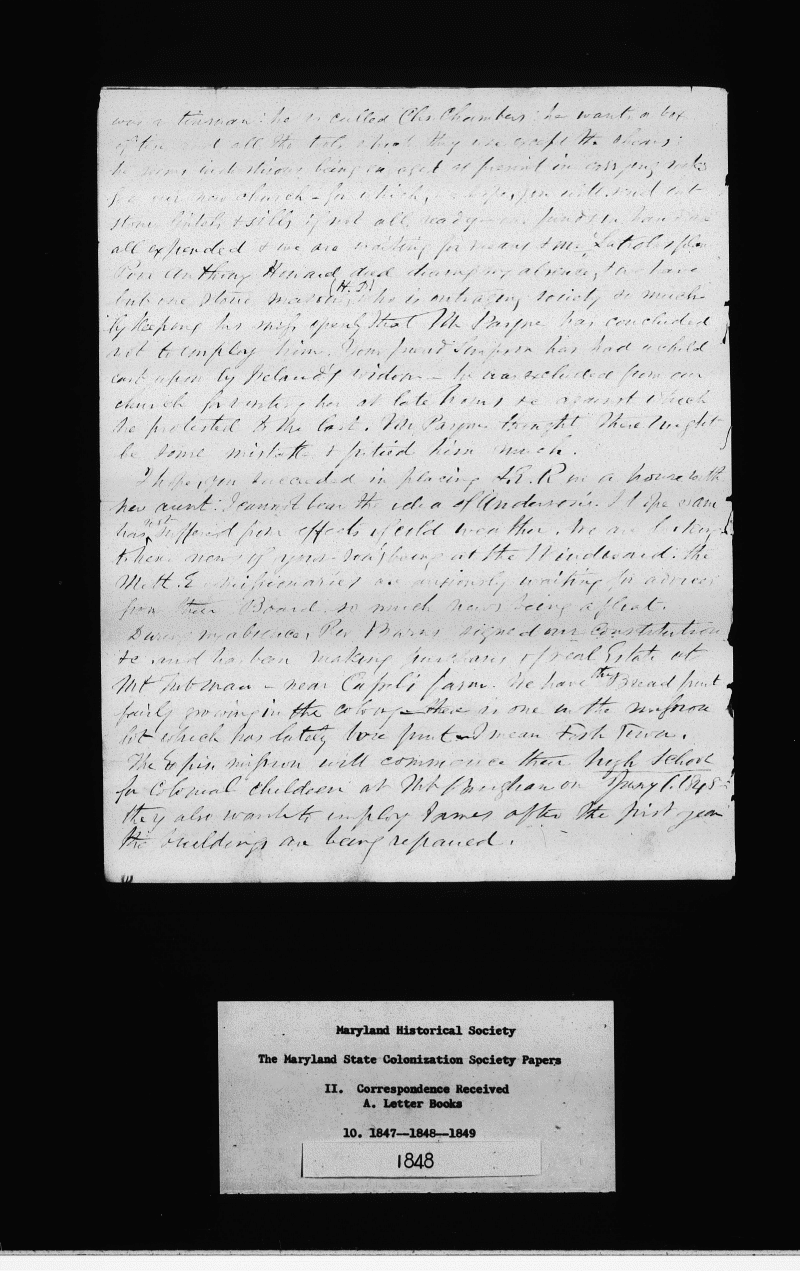 was a tinman: he is called Chs Chambers: he wants a box
of tin and all the tools which they use except the shears:
he seems industrious being engaged at present in
our new church - for which, we hope, you will send out
stone & sills if not all ready - our funds in hand are
all expended & we are waiting for means &
Poor Anthony Howard died during my absence, & we have
but one stone mason, (H. J.) who is outraging society so much
by keeping his miss openly that Mr Payne has concluded
not to employ him. Your friend Simpson has had a child
cast upon by Ireland's widow - he was excluded from our
church for visiting her at late hours &c against which
he protested to the last. Mr Payne thought there might
be some mistake & pitied him much.
I hope you succeeded in placing in a house with
her aunt: I cannot bear the idea of Anderson's. I hope
has not suffered from effects of cold weather. We are looking
to hear news of your being at the Windward: the
Meth. E missionaries are anxiously waiting for advices
from their Board so much news being afloat.
During my absence, Rev. Burns signed our constitution
&c and has been making purchases of real Estate at
Mt Tubman - near Capel's farm. We have the Bread fruit
fairly growing in the colony - there is one in the mission
lot which has lately bore fruit - I mean Fish Town.
The Epis mission will commence their high School
for Colonial children at Mt Vaughan on
they also want to employ James after the first year
the buildings are being repaired.
Maryland Historical Society
The Maryland State Colonization Society Papers
II. Correspondence Received
A. Letter Books
10. 1847--1848--1849
1848